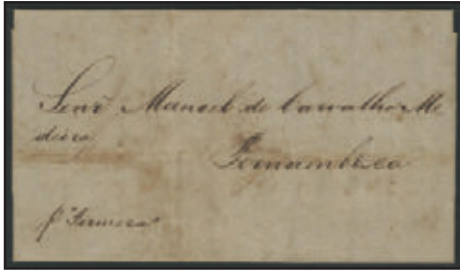 Senr̃ Manoel de Carvalho Me
deiro
Pernambuco
p